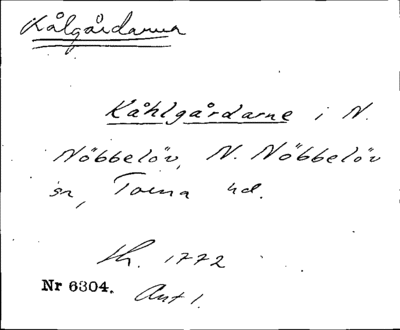 Kålgårdarna
Kåhlgårdarne i N.
Nöbbelöv, N. Nöbbelöv
sn, Torna hd.
Sh. 1772
Nr 6304. Avt 1.